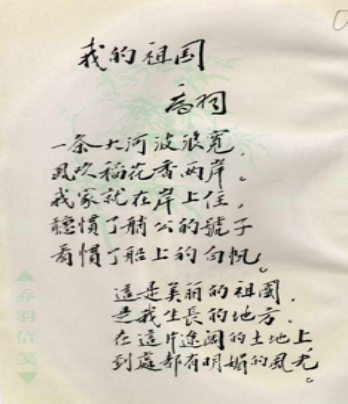 我的祖国
乔羽
一条大河波浪宽，
風吹稻花香两岸。
我家就在岸上住，
聽慣了艄公的號子
看慣了船上的白帆。
這是美丽的祖國，
是我生長的地方，
在這片遼闊的土地上
到處都有明媚的風光。
乔羽信笺